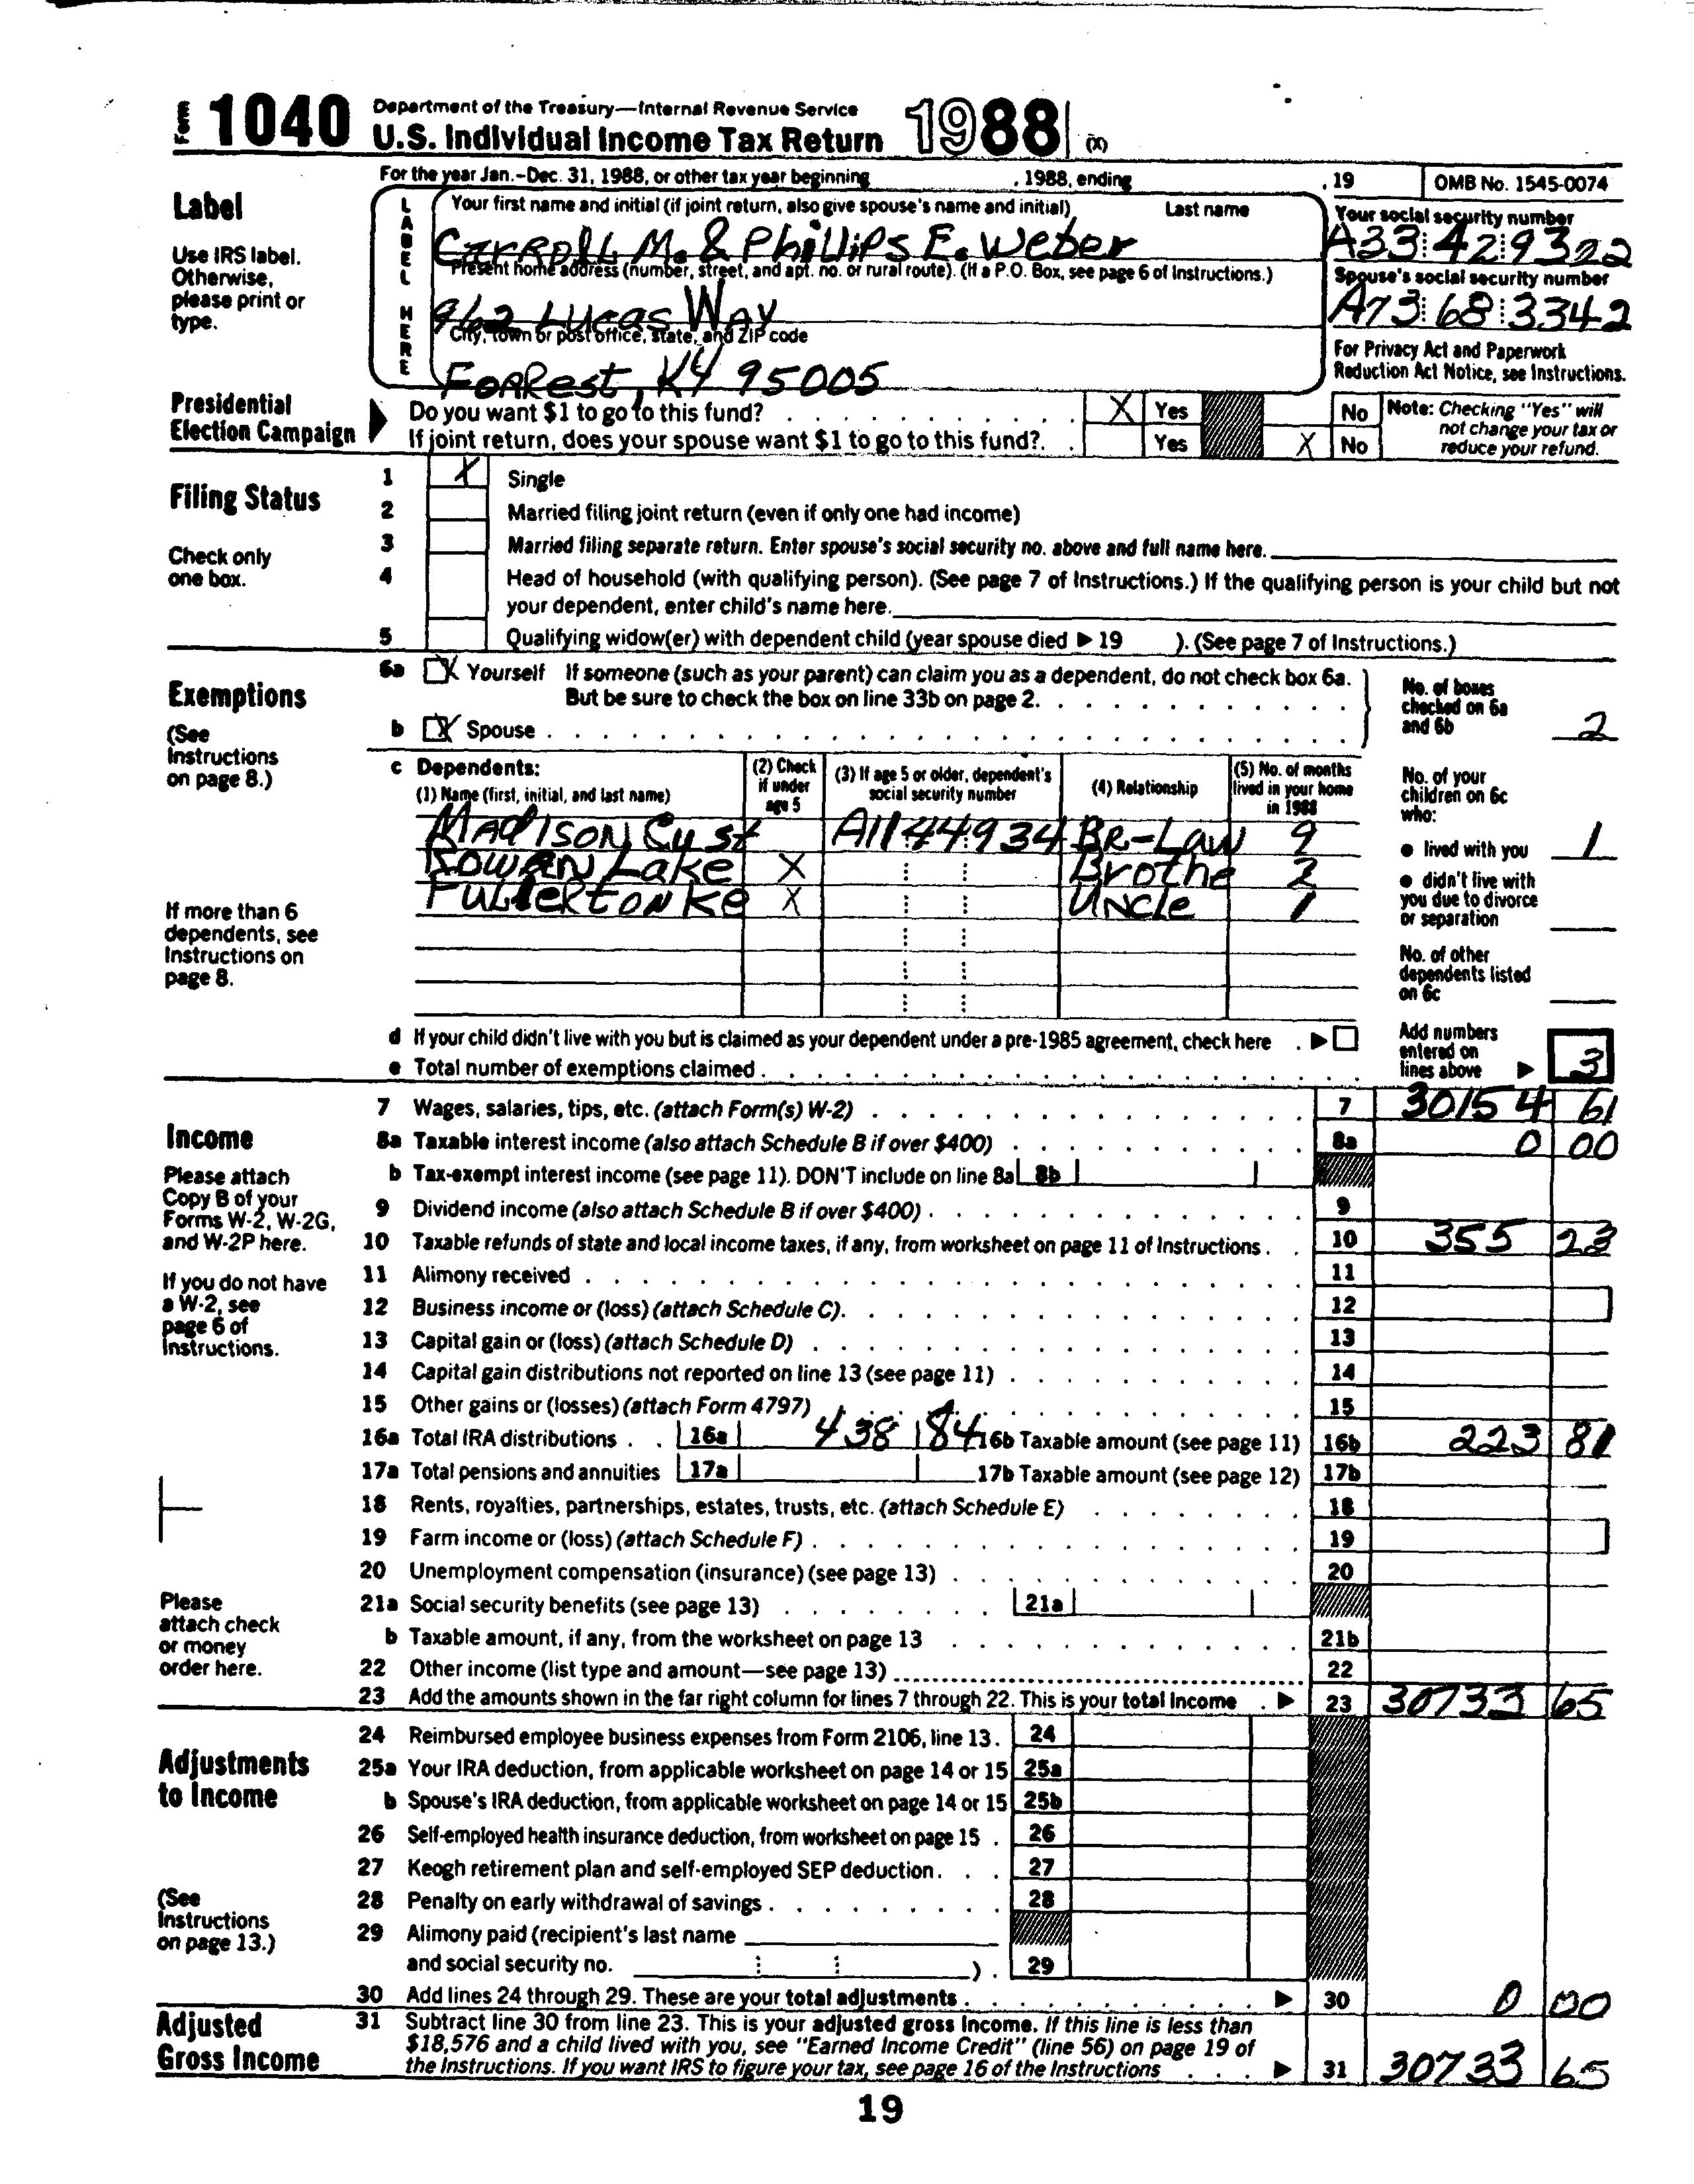 Form 1040 Department of the Treasury—Internal Revenue Service
U.S. Individual Income Tax Return 1988 (X)
For the year Jan.-Dec. 31, 1988, or other tax year beginning , 1988, ending , 19 OMB No. 1545-0074
Label
Use IRS label.
Otherwise,
please print or
type.
LABEL HERE
Your first name and initial (if joint return, also give spouse's name and initial) Last name
CARROLL M. & PhilliPS E. Weber
Present home address (number, street, and apt. no. or rural route). (If a P.O. Box, see page 6 of Instructions.)
962 LUCAS WAY
City, town or post office, state, and ZIP code
FORRest, KY 95005
Your social security number
A33 42 9322
Spouse's social security number
A73 68 3342
For Privacy Act and Paperwork
Reduction Act Notice, see Instructions.
Presidential
Election Campaign
Do you want $1 to go to this fund? X Yes No
If joint return, does your spouse want $1 to go to this fund?. Yes X No
Note: Checking "Yes" will
not change your tax or
reduce your refund.
Filing Status
Check only
one box.
1 X Single
2 Married filing joint return (even if only one had income)
3 Married filing separate return. Enter spouse's social security no. above and full name here.
4 Head of household (with qualifying person). (See page 7 of Instructions.) If the qualifying person is your child but not
your dependent, enter child's name here.
5 Qualifying widow(er) with dependent child (year spouse died ▶ 19 ). (See page 7 of Instructions.)
Exemptions
(See
Instructions
on page 8.)
If more than 6
dependents, see
Instructions on
page 8.
6a X Yourself If someone (such as your parent) can claim you as a dependent, do not check box 6a.
But be sure to check the box on line 33b on page 2.
b X Spouse
No. of boxes
checked on 6a
and 6b 2
c Dependents:
(1) Name (first, initial, and last name)
(2) Check
if under
age 5
(3) If age 5 or older, dependent's
social security number
(4) Relationship
(5) No. of months
lived in your home
in 1988
MADISON Cyst A11 44 934 BR-LAW 9
ROWAN Lake X Brothe 2
FULLERTON Ke X UNCLe 1
No. of your
children on 6c
who:
● lived with you 1
● didn't live with
you due to divorce
or separation
No. of other
dependents listed
on 6c
d If your child didn't live with you but is claimed as your dependent under a pre-1985 agreement, check here . ▶
e Total number of exemptions claimed
Add numbers
entered on
lines above ▶ 3
Income
Please attach
Copy B of your
Forms W-2, W-2G,
and W-2P here.
If you do not have
a W-2, see
page 6 of
Instructions.
Please
attach check
or money
order here.
7 Wages, salaries, tips, etc. (attach Form(s) W-2) 7 30154 61
8a Taxable interest income (also attach Schedule B if over $400) 8a 0 00
b Tax-exempt interest income (see page 11). DON'T include on line 8a 8b
9 Dividend income (also attach Schedule B if over $400) 9
10 Taxable refunds of state and local income taxes, if any, from worksheet on page 11 of Instructions. 10 355 23
11 Alimony received 11
12 Business income or (loss) (attach Schedule C). 12
13 Capital gain or (loss) (attach Schedule D) 13
14 Capital gain distributions not reported on line 13 (see page 11) 14
15 Other gains or (losses) (attach Form 4797) 15
16a Total IRA distributions 16a 438 84 16b Taxable amount (see page 11) 16b 223 81
17a Total pensions and annuities 17a 17b Taxable amount (see page 12) 17b
18 Rents, royalties, partnerships, estates, trusts, etc. (attach Schedule E) 18
19 Farm income or (loss) (attach Schedule F) 19
20 Unemployment compensation (insurance) (see page 13) 20
21a Social security benefits (see page 13) 21a
b Taxable amount, if any, from the worksheet on page 13 21b
22 Other income (list type and amount—see page 13) 22
23 Add the amounts shown in the far right column for lines 7 through 22. This is your total income . ▶ 23 30733 65
Adjustments
to Income
(See
Instructions
on page 13.)
24 Reimbursed employee business expenses from Form 2106, line 13. 24
25a Your IRA deduction, from applicable worksheet on page 14 or 15 25a
b Spouse's IRA deduction, from applicable worksheet on page 14 or 15 25b
26 Self-employed health insurance deduction, from worksheet on page 15 . 26
27 Keogh retirement plan and self-employed SEP deduction. 27
28 Penalty on early withdrawal of savings 28
29 Alimony paid (recipient's last name
and social security no. ). 29
30 Add lines 24 through 29. These are your total adjustments ▶ 30 0 00
Adjusted
Gross Income
31 Subtract line 30 from line 23. This is your adjusted gross income. If this line is less than
$18,576 and a child lived with you, see "Earned Income Credit" (line 56) on page 19 of
the Instructions. If you want IRS to figure your tax, see page 16 of the Instructions ▶ 31 30733 65
19